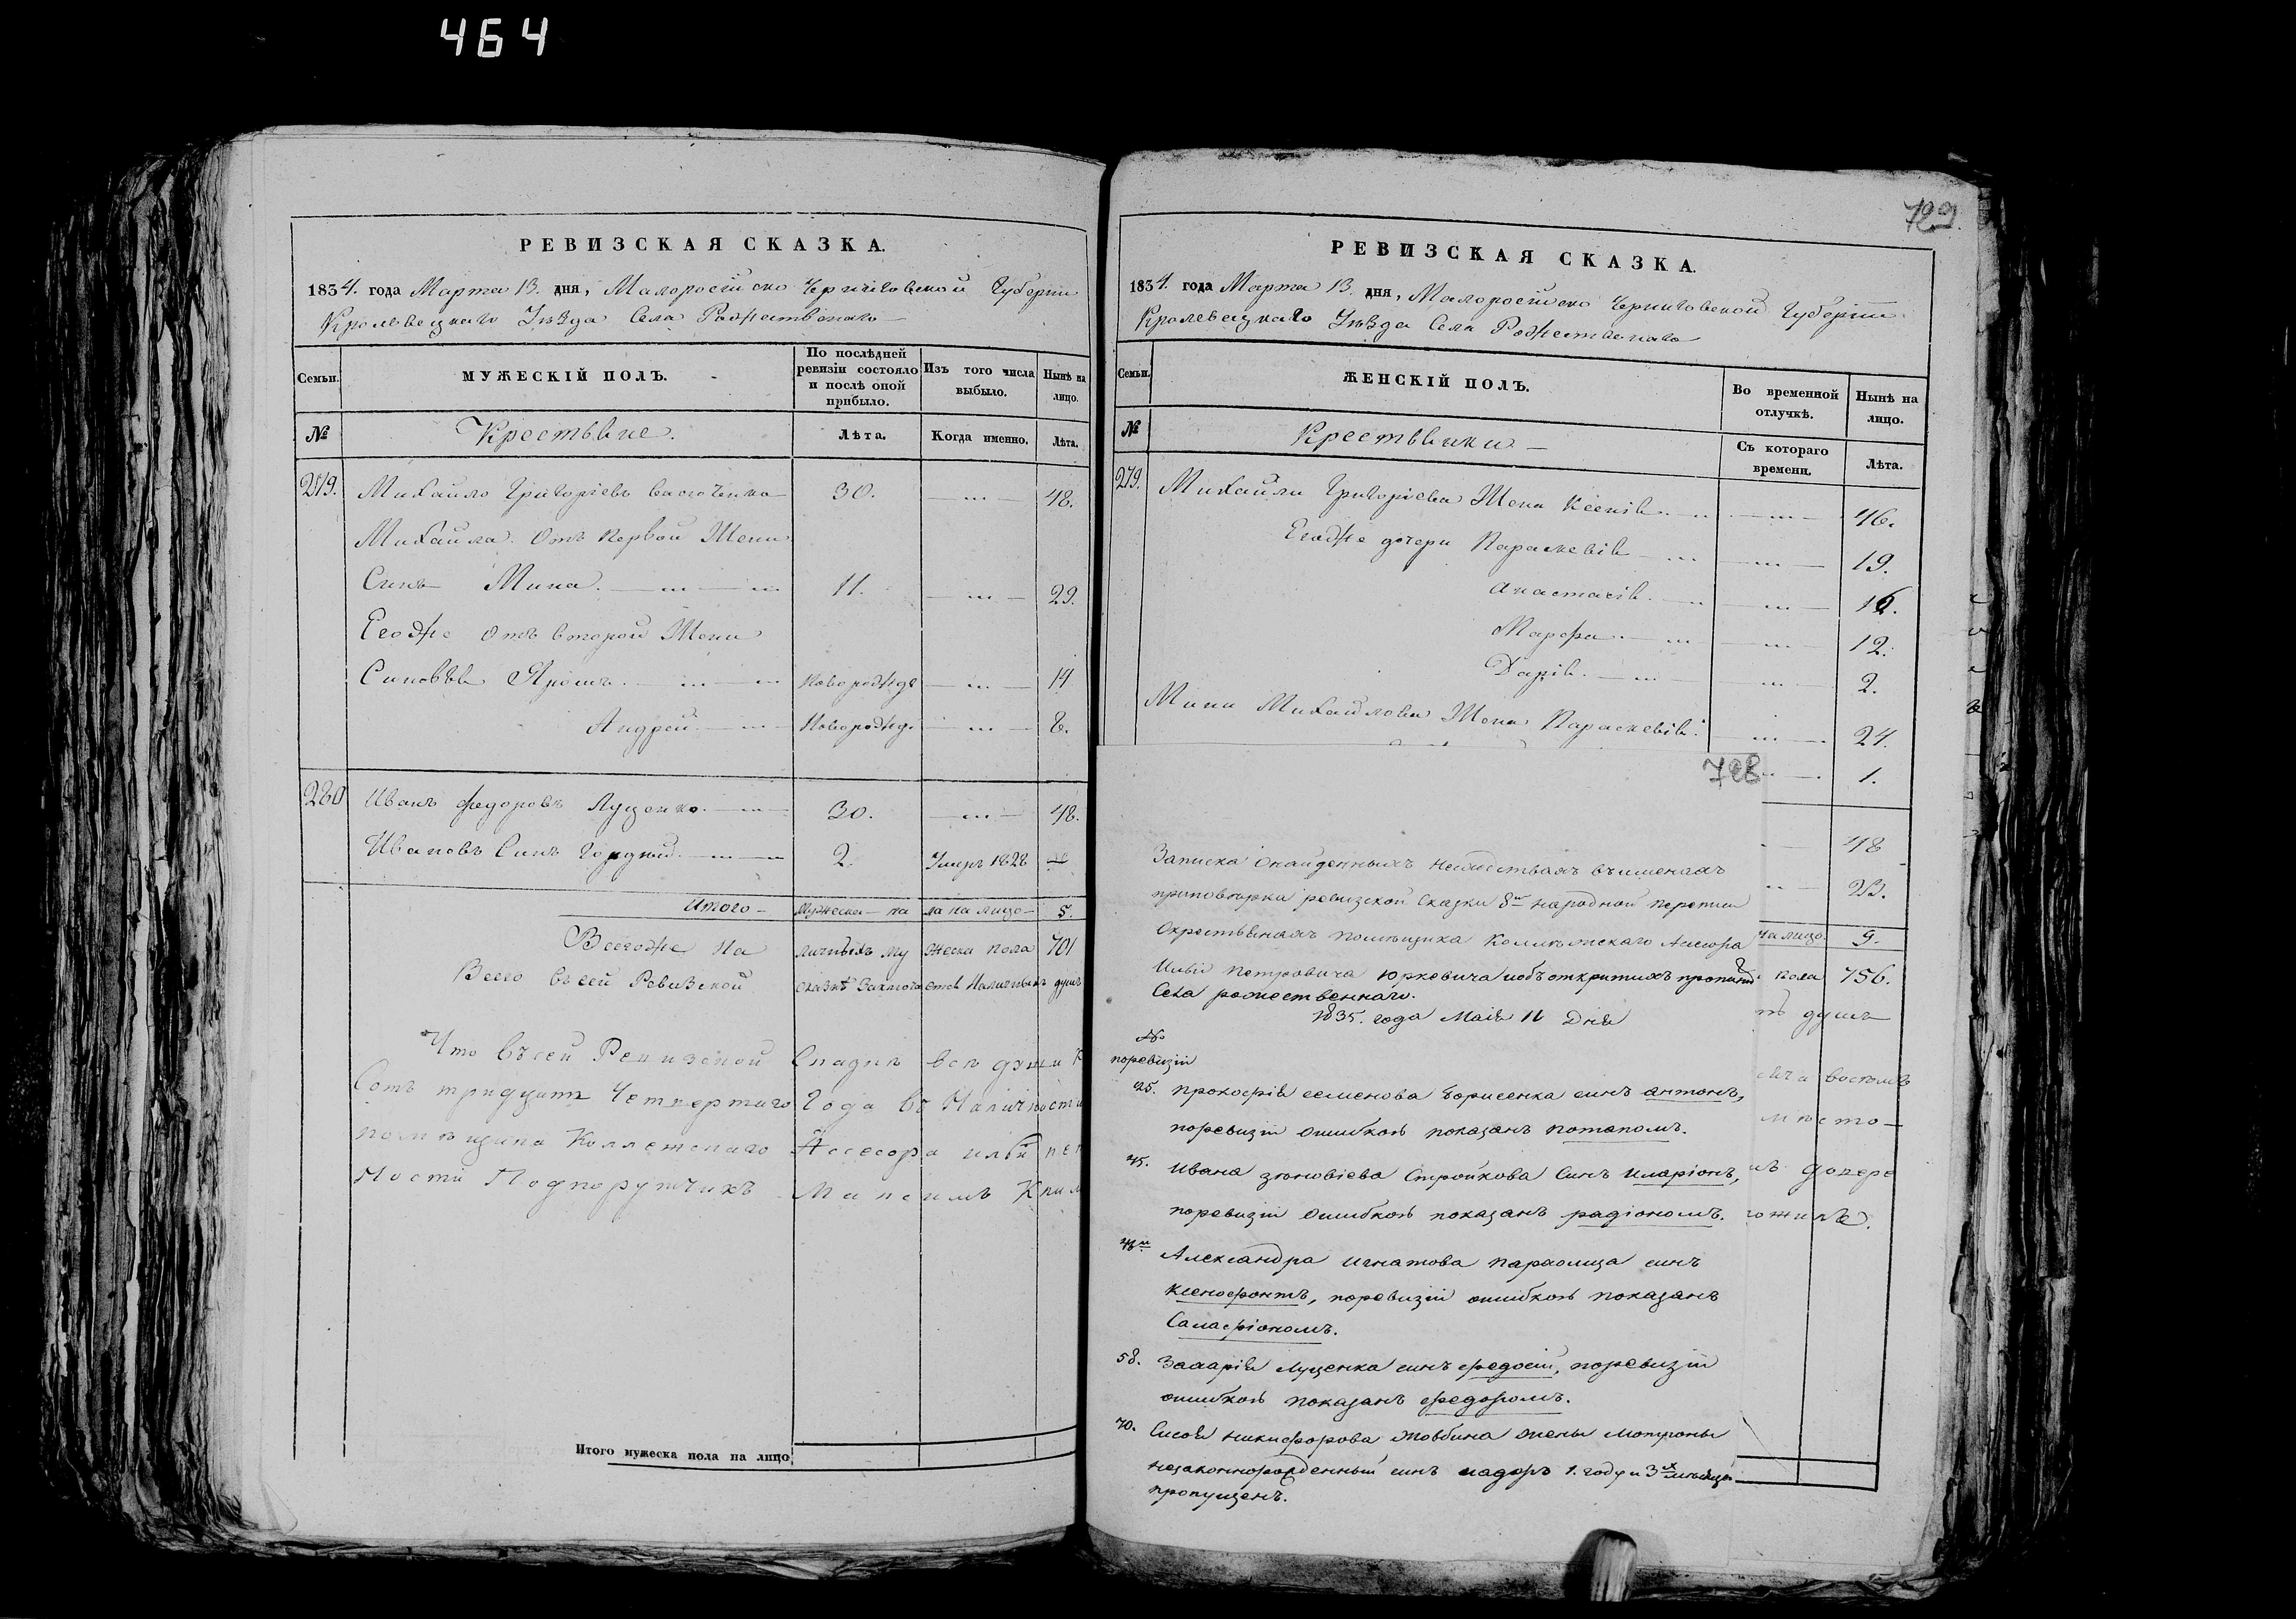 464
РЕВИЗСКАЯ СКАЗКА.
1834. года Марта 13. дня, Малоросійско Черниговской Губерніи
Кролевецкаго Уѣзда Села Рождественаго
Семьи.
МУЖЕСКІЙ ПОЛЪ.
По послѣдней ревизіи состояло и послѣ оной прибыло.
Изъ того числа выбыло.
Нынѣ на лицо.
№
Крестьяне.
Лѣта.
Когда именно.
Лѣта.
279. Михайло Григоріевъ 30. 48.
Михайла Отъ первой Жени
Синъ Мина. 11. 29.
Егодже Отъ второй Жени
Синовья Ярошъ Новорожд 14
Андрей Новорожд. 8.
280 Иванъ федоровъ Луценко. 30. 48.
Ивановъ Синъ Гордѣй 2. Умеръ 1828
Итого мужеска на лицо 5.
Всегоже На личныхъ Мужеска пола 701
Всего въ сей Ревизской сказкѣ Заключается Наличныхъ душъ
Что въ сей Ревизской Сказкѣ всѣ души
Сотъ тридцать Четвертаго Года въ Наличности
помѣщика Коллежскаго Ассесора Ильи
Ности Подпорутчикъ Максимъ
Итого мужеска пола на лицо
729.
РЕВИЗСКАЯ СКАЗКА.
1834. года Марта 13. дня, Малоросійско Черниговской Губерніи
Кролевецкаго Уѣзда Села Рождественаго
Семьи.
ЖЕНСКІЙ ПОЛЪ.
Во временной отлучкѣ.
Нынѣ на лицо.
№
Крестьянки
Съ котораго времени.
Лѣта.
279. Михайли Григоріева Жена Ксенія 46.
Егодже дочери Параскевія 19.
Анастасія. 16.
Марфа 12.
Дарія 2.
Мини Михайлова Жена Параскевія. 24.
1.
48
23.
на лицо. 9.
пола 756.
душъ
728
Записка онайденныхъ
приповѣрки ревизской сказки 8й народной переписи
Окрестьянахъ помѣщика Коллежскаго Ассесора
Ильи Петровича Юркевича иобъ откритихъ
Села рожественнаго.
1835. года Маія 11 Дня
№
поревизіи
25. прокофія семенова борисенка синъ антонъ,
поревизіи ошибкою показанъ потапомъ.
45. Ивана зѣновіева Стройкова Синъ Иларіонъ,
поревизіи ошибкою показанъ радіономъ.
Александра игнатова пархомца синъ
ксенофонтъ, поревизіи ошибкою показанъ
Самафіономъ.
58. Захарія луценка синъ федосій, поревизіи
ошибкою показанъ федоромъ.
70. Сисоя никифорова жени мотроны
незаконнорожденный синъ 1. году и 3х мѣсяцъ
пропущенъ.